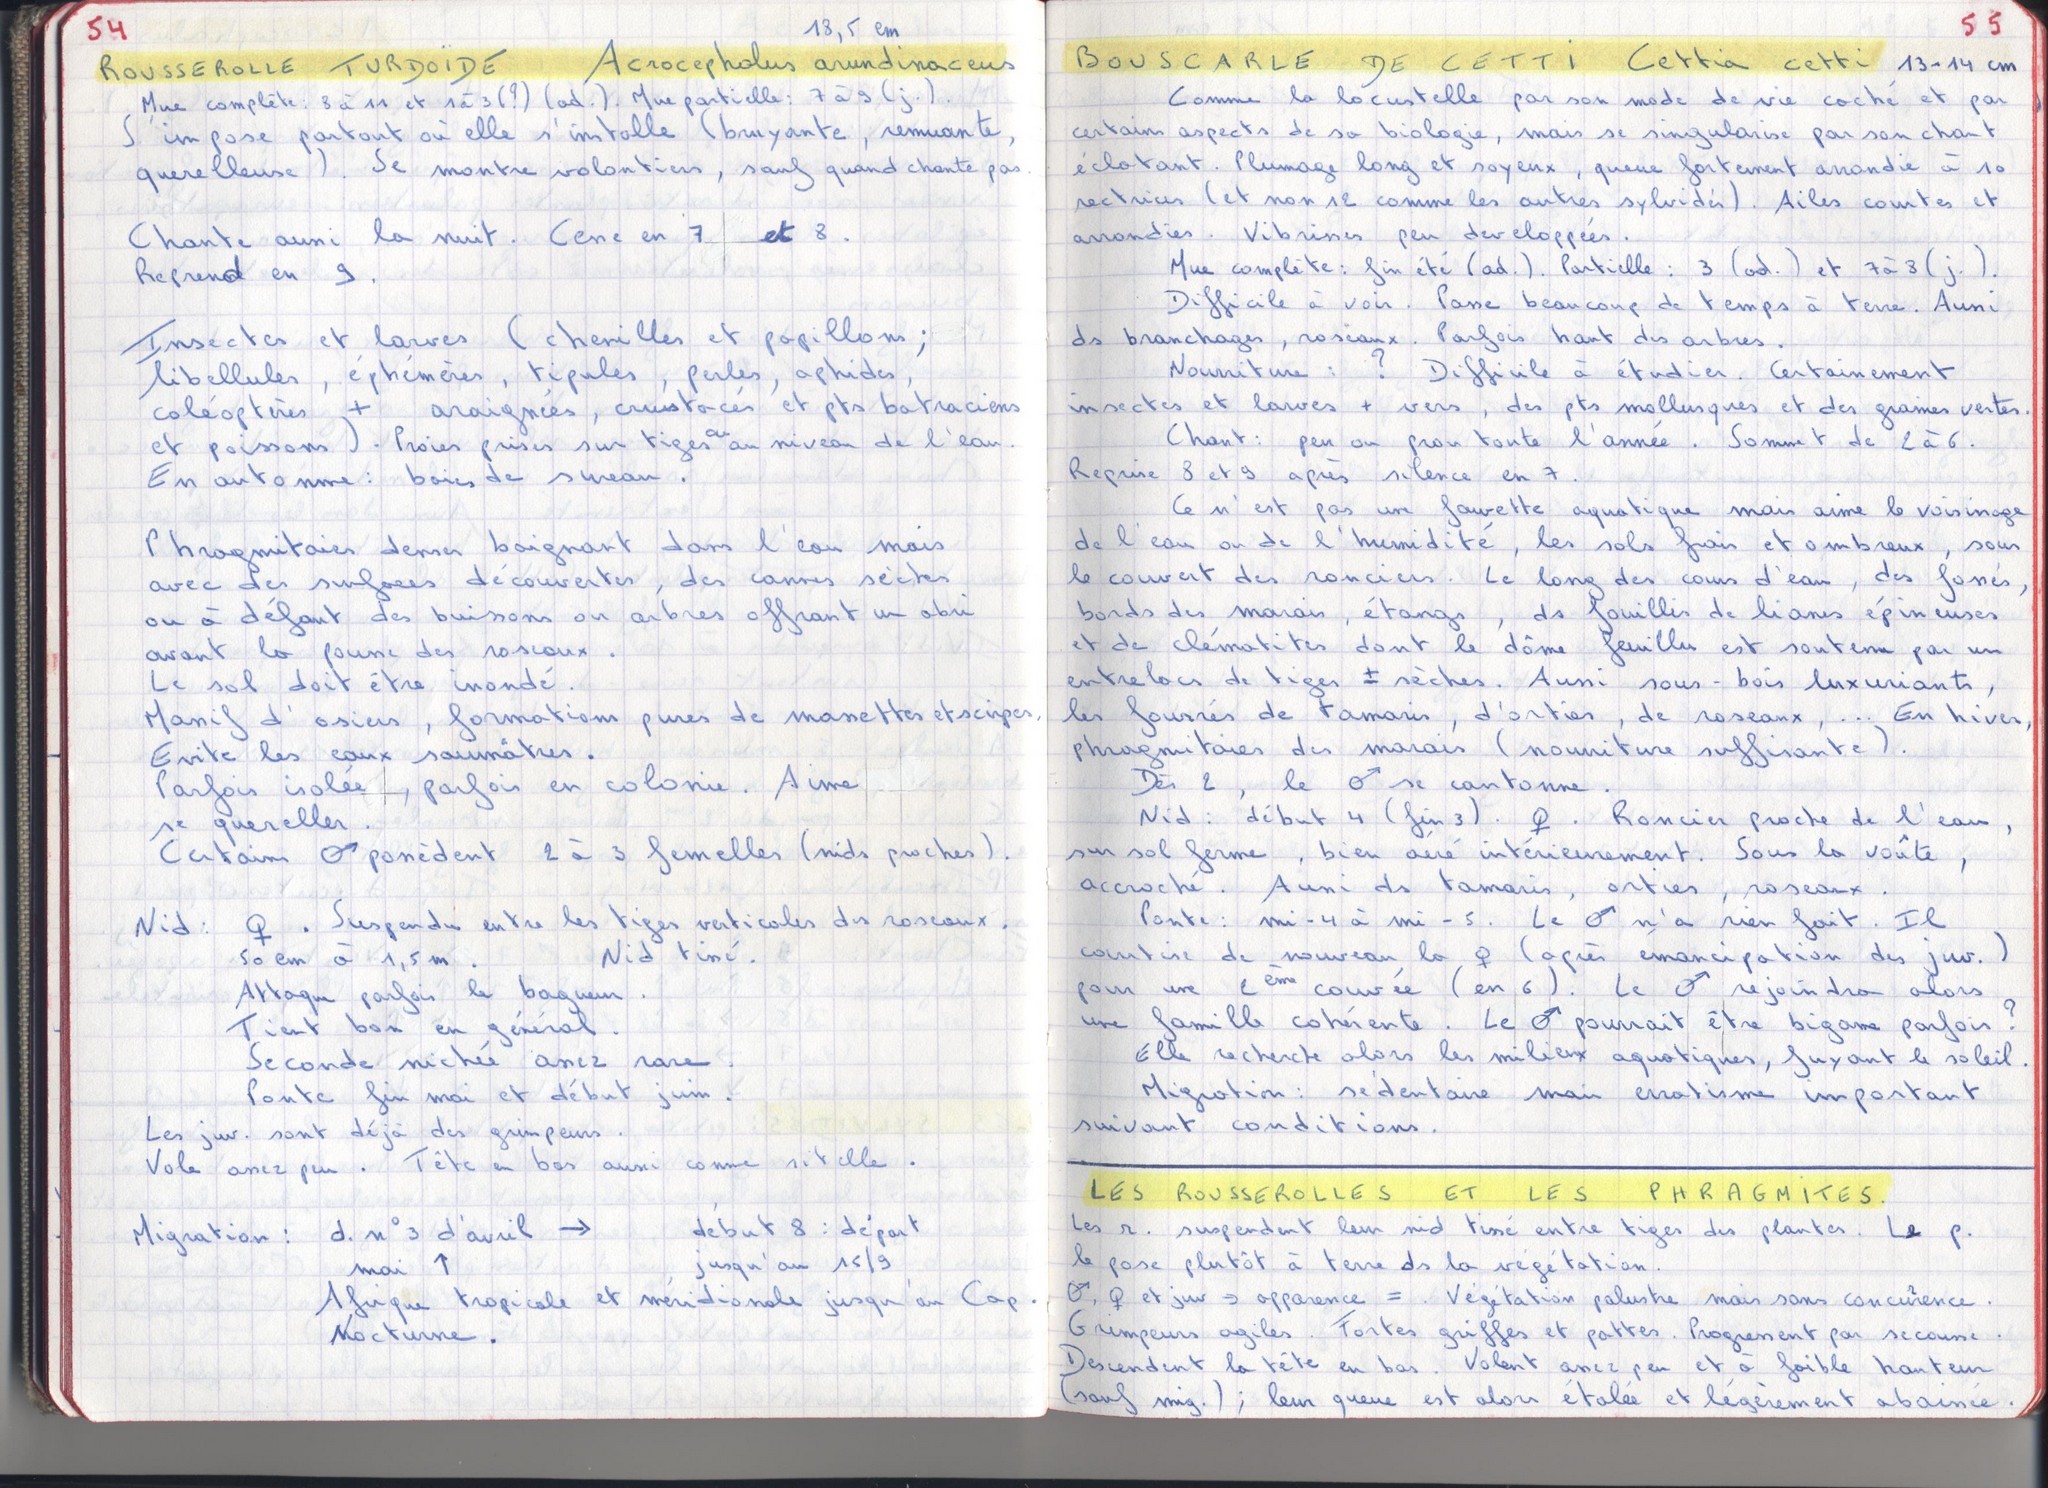 54
18,5 cm
ROUSSEROLLE TURDOÏDE Acrocephalus arundinaceus
Mue complète : 8 à 11 et 1 à 3 (?) (ad.). Mue partielle : 7 à 9 (j.).
S'impose partout où elle s'installe (bruyante, remuante,
querelleuse). Se montre volontiers, sauf quand chante pas.
Chante aussi la nuit. Cesse en 7 et 8.
Reprend en 9.
Insectes et larves (chenilles et papillons ;
libellules, éphémères, tipules, perles, aphides,
coléoptères + araignées, crustacés et pts batraciens
et poissons). Proies prises sur tiges ou au niveau de l'eau.
En automne : baies de sureau.
Phragmitaies denses baignant dans l'eau mais
avec des surfaces découvertes, des cannes sèches
ou à défaut des buissons ou arbres offrant un abri
avant la pousse des roseaux.
Le sol doit être inondé.
Massif d'osiers, formations pures de massettes et scirpes.
Evite les eaux saumâtres.
Parfois isolée, parfois en colonie. Aime
se quereller.
Certains ♂ possèdent 2 à 3 femelles (nids proches).
Nid : ♀. Suspendu entre les tiges verticales des roseaux.
50 cm à 1,5 m. Nid tissé.
Attaque parfois le bagueur.
Tient bon en général.
Seconde nichée assez rare.
Ponte fin mai et début juin.
Les juv. sont déjà des grimpeurs.
Vole assez peu. Tête en bas aussi comme sitelle.
Migration : d. n°3 d'avril → début 8 : départ
mai ↑ jusqu'au 15/9
Afrique tropicale et méridionale jusqu'au Cap.
Nocturne.
55
BOUSCARLE DE CETTI Cettia cetti 13-14 cm
Comme la locustelle par son mode de vie caché et par
certains aspects de sa biologie, mais se singularise par son chant
éclatant. Plumage long et soyeux, queue fortement arrondie à 10
rectrices (et non 12 comme les autres sylvidés). Ailes courtes et
arrondies. Vibrisses peu developpées.
Mue complète : fin été (ad.). Partielle : 3 (ad.) et 7 à 8 (j.).
Difficile à voir. Passe beaucoup de temps à terre. Aussi
ds branchages, roseaux. Parfois haut des arbres.
Nourriture : ? Difficile à étudier. Certainement
insectes et larves + vers, des pts mollusques et des graines vertes.
Chant : peu ou prou toute l'année. Sommet de 2 à 6.
Reprise 8 et 9 après silence en 7.
Ce n'est pas une fauvette aquatique mais aime le voisinage
de l'eau ou de l'humidité, les sols frais et ombreux, sous
le couvert des ronciers. Le long des cours d'eau, des fossés,
bords des marais, étangs, ds fouillis de lianes épineuses
et de clématites dont le dôme feuillu est soutenu par un
entrelacs de tiges ± sèches. Aussi sous-bois luxuriants,
les fourrés de tamaris, d'orties, de roseaux, ... En hiver,
phragmitaies des marais (nourriture suffisante).
Dès 2, le ♂ se cantonne.
Nid : début 4 (fin 3). ♀. Roncier proche de l'eau,
sur sol ferme, bien aéré intérieurement. Sous la voûte,
accroché. Aussi ds tamaris, orties, roseaux.
Ponte : mi-4 à mi-5. Le ♂ n'a rien fait. Il
courtise de nouveau la ♀ (après émancipation des juv.)
pour une 2ème couvée (en 6). Le ♂ rejoindra alors
une famille cohérente. Le ♂ pourrait être bigame parfois ?
Elle recherche alors les milieux aquatiques, fuyant le soleil.
Migration : sédentaire mais erratisme important
suivant conditions.
LES ROUSSEROLLES ET LES PHRAGMITES.
Les r. suspendent leur nid tissé entre tiges des plantes. Le p.
le pose plutôt à terre ds la végétation.
♂, ♀ et juv ⇒ apparence =. Végétation palustre mais sans concurrence.
Grimpeurs agiles. Fortes griffes et pattes. Progressent par secousse.
Descendent la tête en bas. Volent assez peu et à faible hauteur
(sauf mig.) ; leur queue est alors étalée et légèrement abaissée.